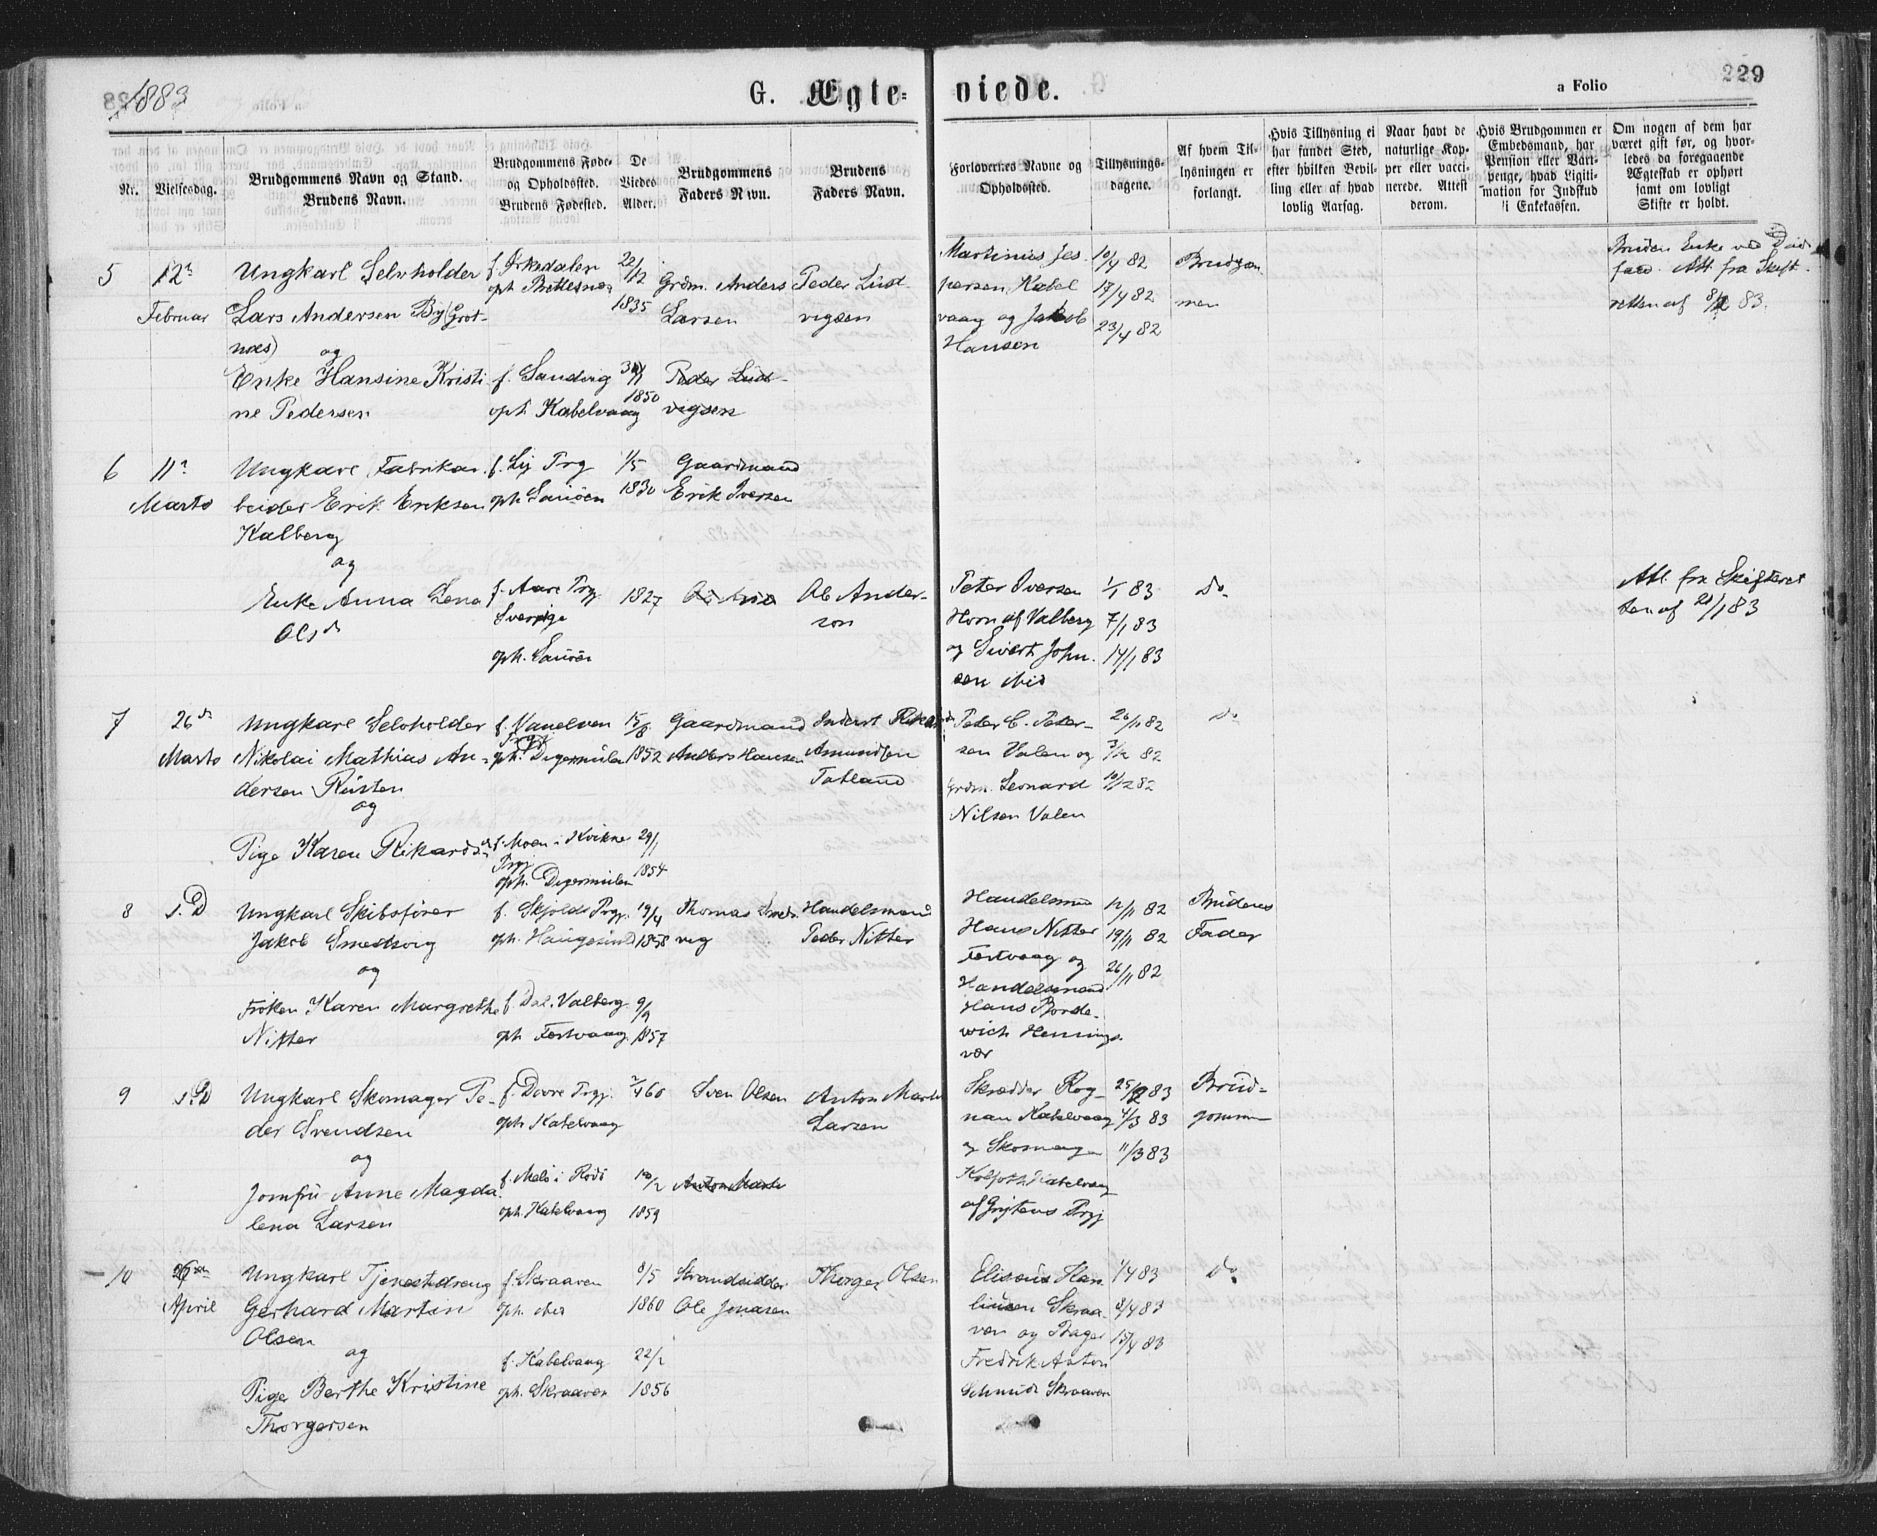 1883
G. Ægte- viede.
a Folio
229
Nr.
Vielsesdag.
Brudgommens Navn og Stand.
Brudens Navn.
Brudgommens Føde-
og Opholdssted.
Brudens Fødested.
De
Viedes
Alder.
Brudgommens
Faders Navn.
Brudens
Faders Navn.
Forlovernes Navne og
Opholdssted.
Tillysnings-
dagene.
Af hvem Til-
lysningen er
forlangt.
Hvis Tillysning ei
har fundet Sted,
efter hvilken Bevil-
ling eller af hvad
lovlig Aarsag.
Naar havt de
naturlige Kop-
per eller vacci-
nerede. Attest
derom.
Hvis Brudgommen er
Embedsmand, har
Pension eller Vart-
penge, hvad Ligiti-
mation for Indskud
i Enkekassen.
Om nogen af dem har
været gift før, og hvor-
ledes da foregaaende
Ægteskab er ophørt
samt om lovligt
Skifte er holdt.
5
12te
Februar
Ungkarl Selvholder
Lars Andersen By (Grot-
næs)
og
Enke Hansine Kristi
ne Pedersen
f. Orkedalen
oph. Brettesnæs
f. Sandvig
oph. Kabelvaag
22/12
1835
1850
Grdm. Anders
Larsen
Peder Lud-
vigsen
Peder Lud-
vigsen
Martinus Jes
persen, Kabel
vaag og Jakob
Hansen
10/4 82
17/4 82
23/4 82
Brudgom
men
Bruden Enke ved Døds
fald. Att. fra Skift
retten af 8/2 83.
6
11te
Marts
Ungkarl Fabrikar
beider Erik Eriksen
Kalberg
og
Enke Anna Lena
Olsdr
f. Lij Prg
oph. Sauøen
f. Aare Prg
Sverrige
oph. Sauøen
1/5
1830
1827
Gaardmand
Erik Iversen
Ole Ander-
son
Peter Iversen
Horn af Valberg
og Sivert John-
sen ibid
1/1 83
7/1 83
14/1 83
Do
Att. fra Skifteret
ten af 20/1 83
7
26de
Marts
Ungkarl Selvholder
Nikolai Mathias An-
dersen Rusten
og
Pige Karen Rikardsdr
f. Vanelven
Prgj
oph. Digermulen
f. Moen i Kvikne
Prgj
oph. Digermulen
15/8
1852
29/1
1854
Gaardmand
Anders Hansen
Inderst Rikard
Amundsen
Tatland
Peter C. Peter-
sen Valen og
Grdm. Leonard
Nilsen Valen
26/11 82
3/12 82
10/12 82
Do
8
s. D
Ungkarl Skibsfører
Jakob Smedsvig
og
Frøken Karen Margrethe
Nitter
f. Skjolds Prgj.
oph. Haugesund
f. Dal. Valberg
oph. Festvaag
19/4
1858
9/9
1857
Thomas Smeds
vig
Handelsmand
Peder Nitter
Handelsmd
Hans Nitter
Festvaag og
Handelsmand
Hans Borde-
wich Hennings
vær
12/11 82
19/11 82
26/11 82
Brudens
Fader
9
s. D
Ungkarl Skomager Pe-
der Svendsen
og
Jomfru Anne Magda
lena Larsen
f. Dovre Prgj.
oph. Kabelvaag
f. Melø i Rødø
oph. Kabelvaag
2/4 60
1859
Sven Olsen
Anton Martin
Larsen
Skrædder Rog-
nan Kabelvaag
og Skomager
Kabelvaag
af Grytens Prgj
25/2 83
4/3 83
11/3 83
Brud-
gommen
10
April
Ungkarl Tjenestdreng
Gerhard Martin
Olsen
og
Pige Berthe Kristine
Thorgersen
f. Skraaven
oph. ibid
f. Kabelvaag
oph. Skraaven
8/5
1860
22/2
1856
Strandsidder
Ole Jonasen
Thorger Olsen
Elisæus Han
linsen Skraa-
ven og Bager
Fredrik Anton
Schmidt Skraaven
1/4 83
8/4 83
15/4 83
Do